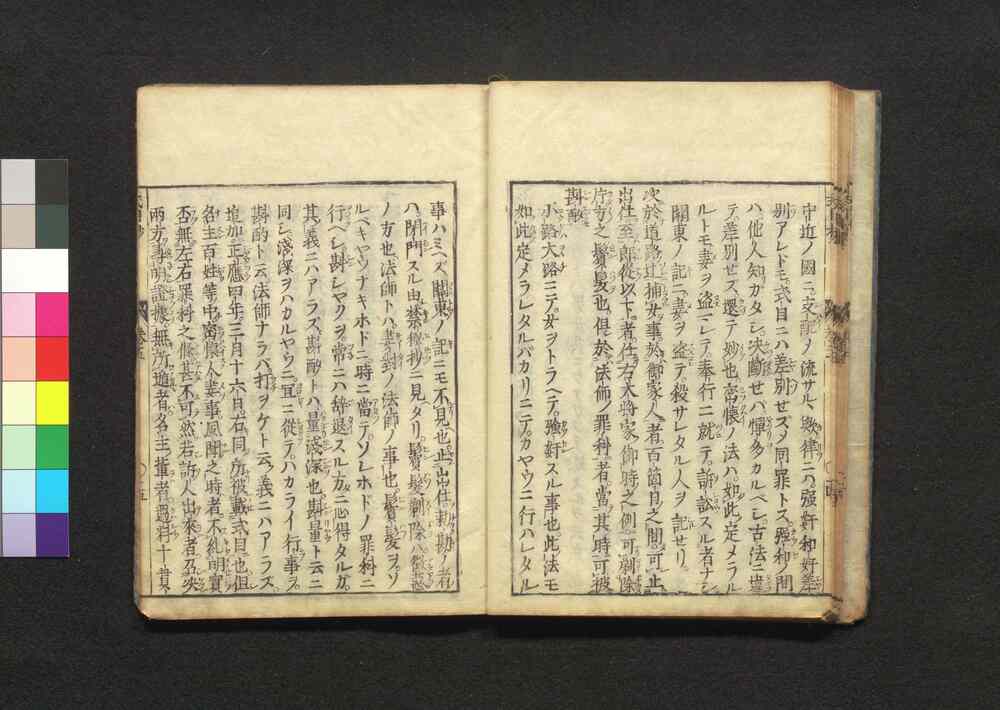 中近ノ國ニ支配ノ流サルヽ歟律ニハ強奸和奸差
別アレドモ式目ニハ差別せズメ同罪トス強和ノ間
ハ他人知カタシ決斷せバ憚多カルベシ古法ニ違
テ差別せス還テ妙也密懐ノ法ハ如此定メラル
ルトモ妻ヲ盗マレテ奉行ニ就テ訴訟スル者ナシ
關東ノ記ニ妻ヲ盗テ殺サレタル人ヲ記せリ
次於道路辻捕女事於御家人者百箇日之間可止
出仕至郎從以下者任右大將家御時之例可剃除
片方之鬢髮也但於法師ノ罪科者當其時可被
斟酌
小路大路ニテ女ヲトラヘテ強奸スル事也此法モ
如此定メラレタルバカリニテカヤウニ行ハレタル
事ハミヘズ關東ノ記ニモ不見也止出仕勅勘ノ者
ハ閉門スル由禁秘抄ニ見タリ鬢髮剃除ハ徴惡
ノ方也法師トハ妻對ノ法師ノ事也鬢髮ヲソ
ルベキヤウナキホドニ時ニ當テソレホドノ罪科ニ
行ベシ斟シヤクヲ常ニハ辭退スル方ニ心得タルカ
其義ニハアラズ斟酌トハ量淺深也斟量ト云ニ
同シ淺深ヲハカルヤウニ冝ニ從テハカライ行事ヲ
斟酌ト云法師ナラバ打ヲケト云義ニハアラズ
追加正應四年三月十六日右同所被載式目也但
名主百姓等中密懐人妻事風聞之時者不糺明實
否無左右罪科之條甚不可然若訴人出來者召决
兩方事明證據無所遁者名主輩者過料十貫